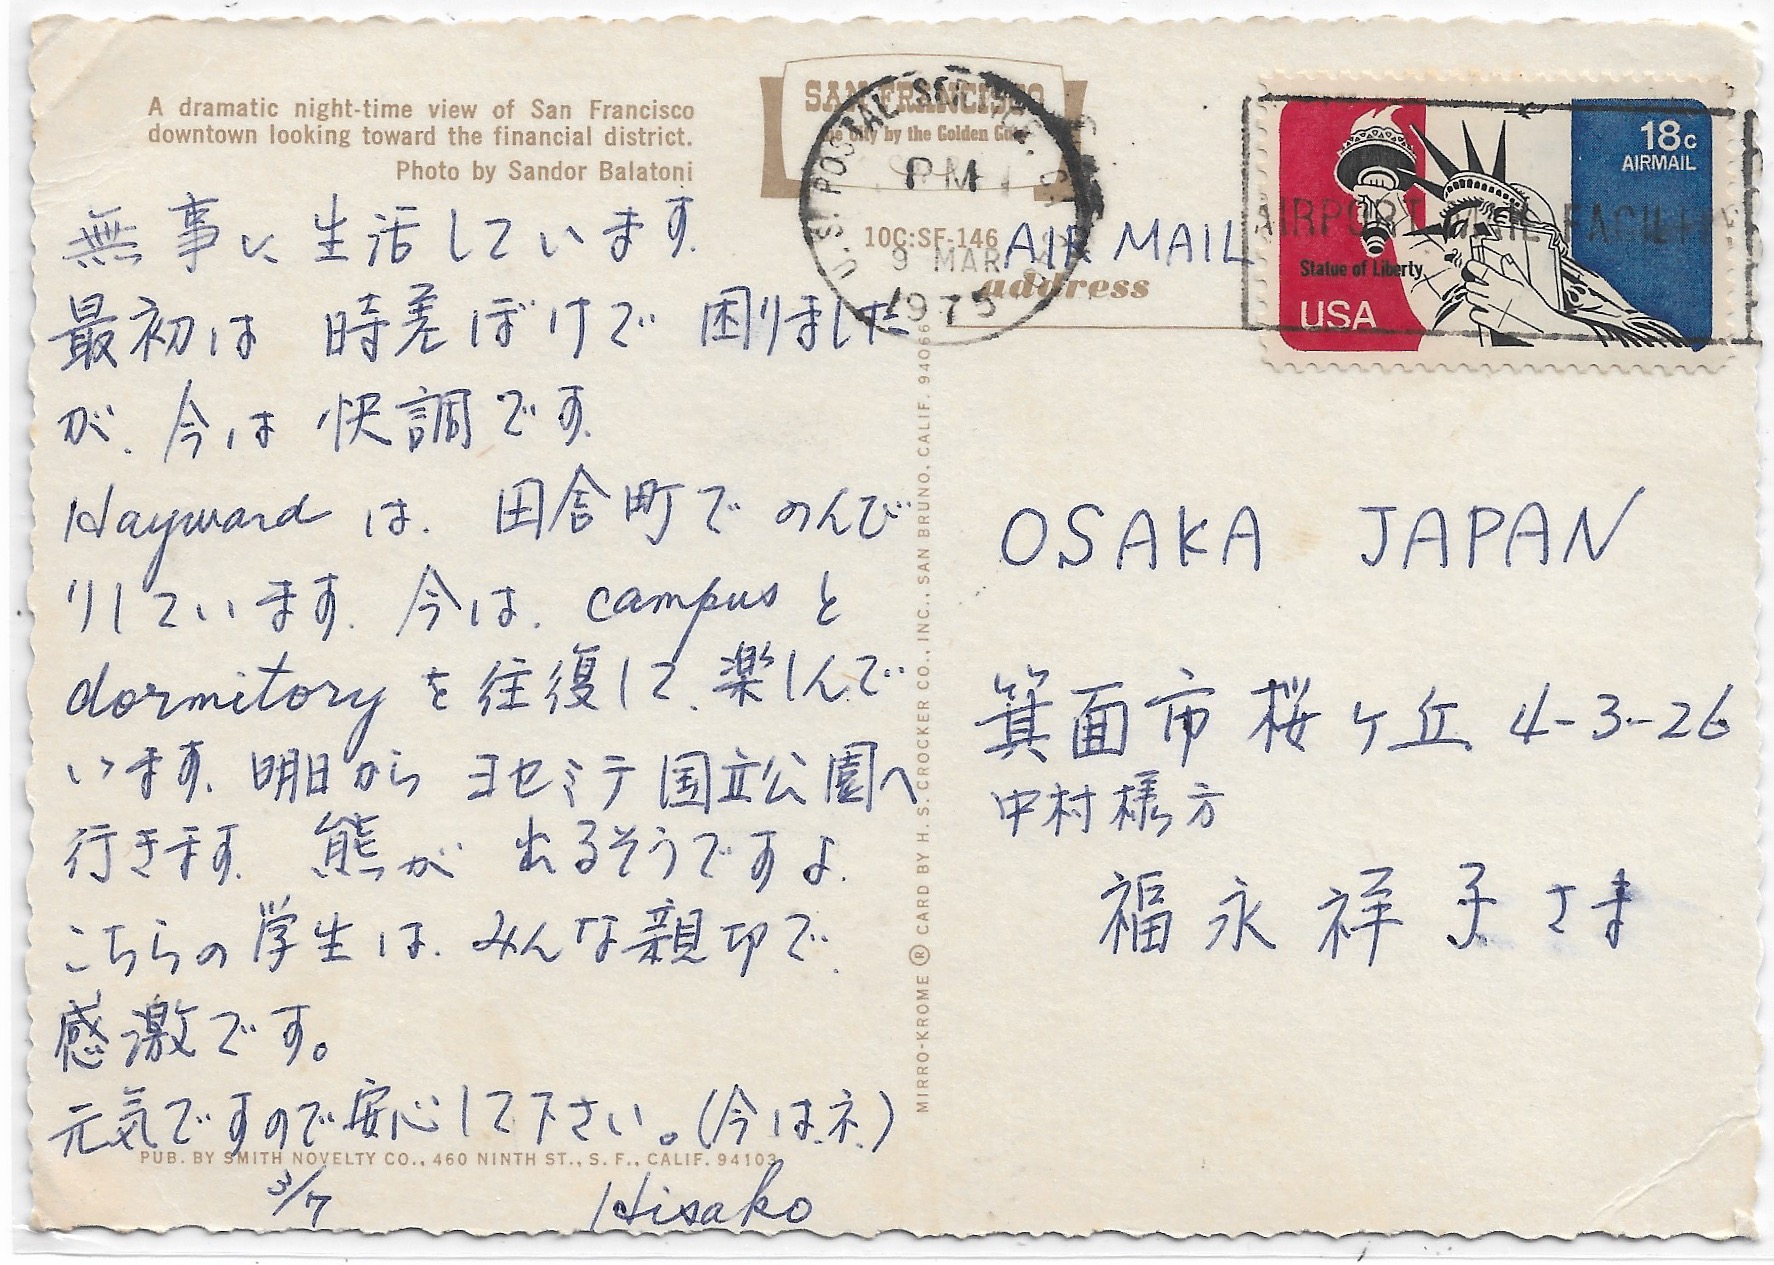 A dramatic night-time view of San Francisco
downtown looking toward the financial district.
Photo by Sandor Balatoni
無事に生活しています.
最初は 時差ぼけで 困りました
が. 今は 快調です.
Hayward は. 田舎町で のんび
りしています. 今は. campus と
dormitory を往復して. 楽しんで
います. 明日から ヨセミテ国立公園へ
行きます. 熊が 出るそうですよ.
こちらの学生は. みんな親切で.
感激です。
元気ですので安心して下さい。(今はネ.)
PUB. BY SMITH NOVELTY CO., 460 NINTH ST., S. F., CALIF. 94103
3/7 Hisako
MIRRO-KROME ® CARD BY H. S. CROCKER CO., INC., SAN BRUNO, CALIF. 94066
SAN FRANCISCO
by the Golden
U.S. POSTAL
PM
9 MAR
1975
10C:SF-146
AIR MAIL
address
18c
AIRMAIL
AIRPORT MAIL FACILITY
Statue of Liberty
USA
OSAKA JAPAN
箕面市 桜ケ丘 4-3-26
中村様方
福永祥子さま